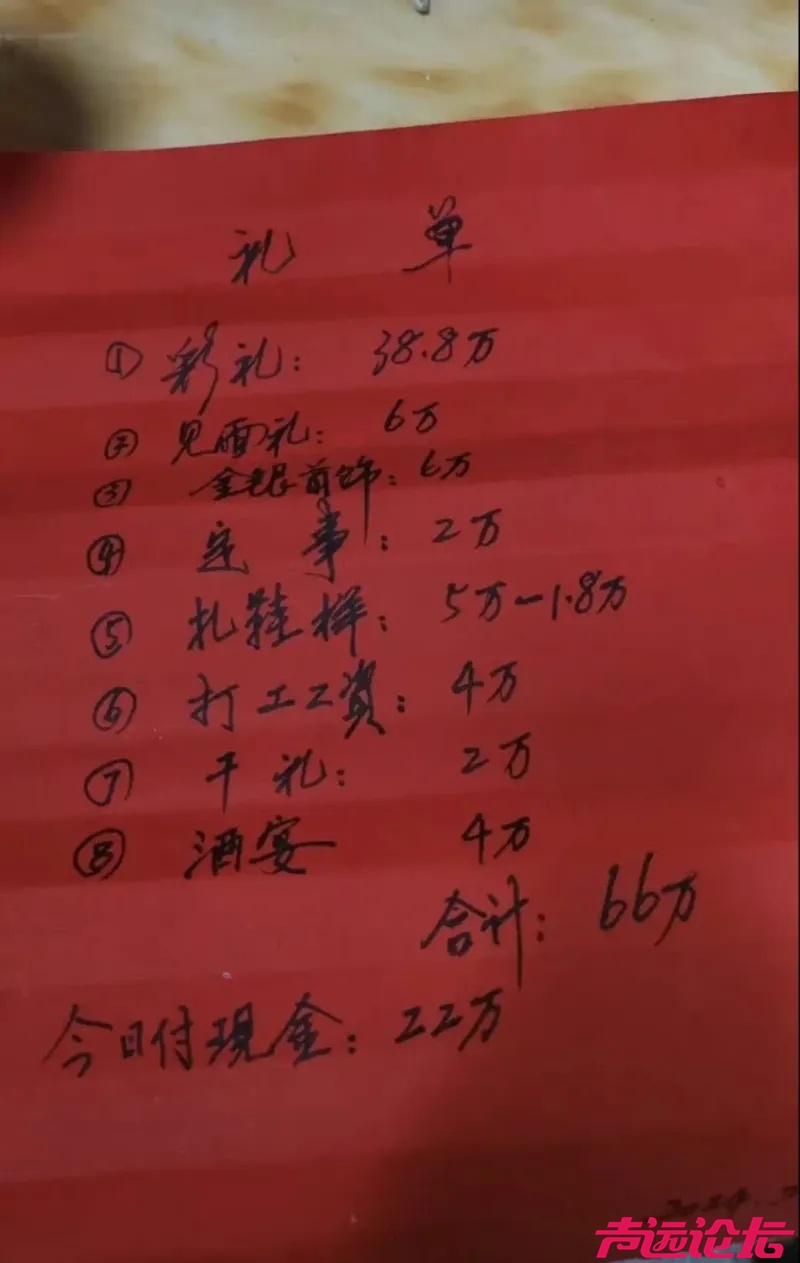 礼 单
① 彩礼: 38.8万
② 见面礼: 6万
③ 金银首饰: 6万
④ 定 事: 2万
⑤ 扎鞋样: 5万-1.8万
⑥ 打工工資: 4万
⑦ 干礼: 2万
⑧ 酒宴 4万
合计: 66万
今日付現金: 22万
2024.
声远论坛